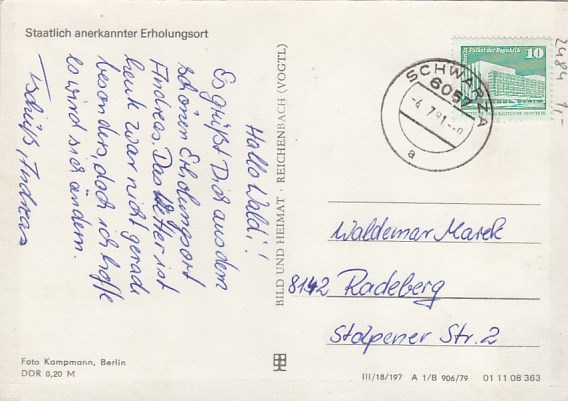 Staatlich anerkannter Erholungsort
Hallo Waldi!
Es grüßt Dich aus dem
schönen Erholungsort
Andreas. Das Wetter ist
heute zwar nicht gerade
besonders, doch ich hoffe
es wird sich ändern.
Tschüß Andreas
Foto Kampmann, Berlin
DDR 0,20 M
BILD UND HEIMAT · REICHENBACH (VOGTL)
SCHWARZA
6057
-4.7.81.--9
a
Palast der Republik
10
2484 1,-
Waldemar Marek
8142 Radeberg
Stolpener Str. 2
III/18/197 A 1/B 906/79 01 11 08 363